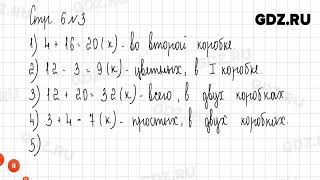 GDZ.RU
Стр 6 №3
1) 4 + 16 = 20 (к) - во второй коробке.
2) 12 - 3 = 9 (к) - цветных, в I коробке
3) 12 + 20 = 32 (к) - всего, в двух коробках
4) 3 + 4 = 7 (к) - простых, в двух коробках.
5)